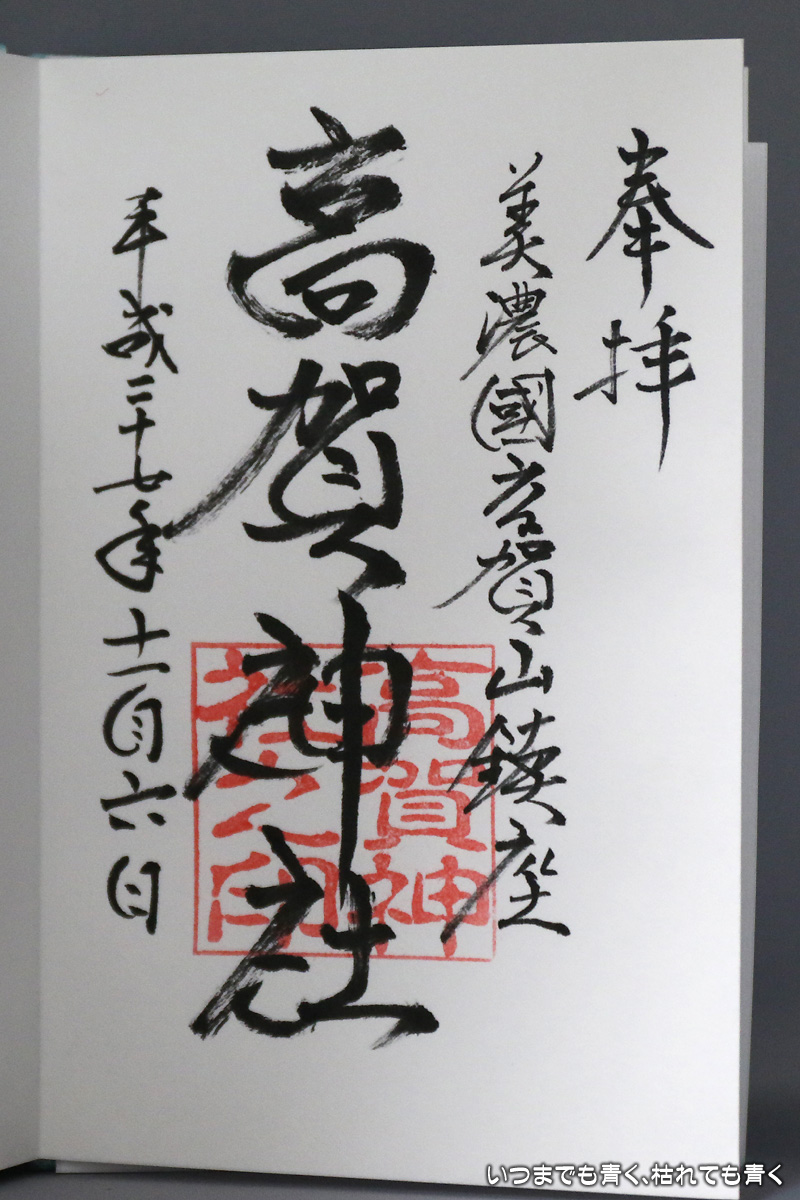 奉拝
美濃國高賀山鎮座
高賀神社
高賀神
社之印
平成二十七年十一月六日
いつまでも青く、枯れても青く